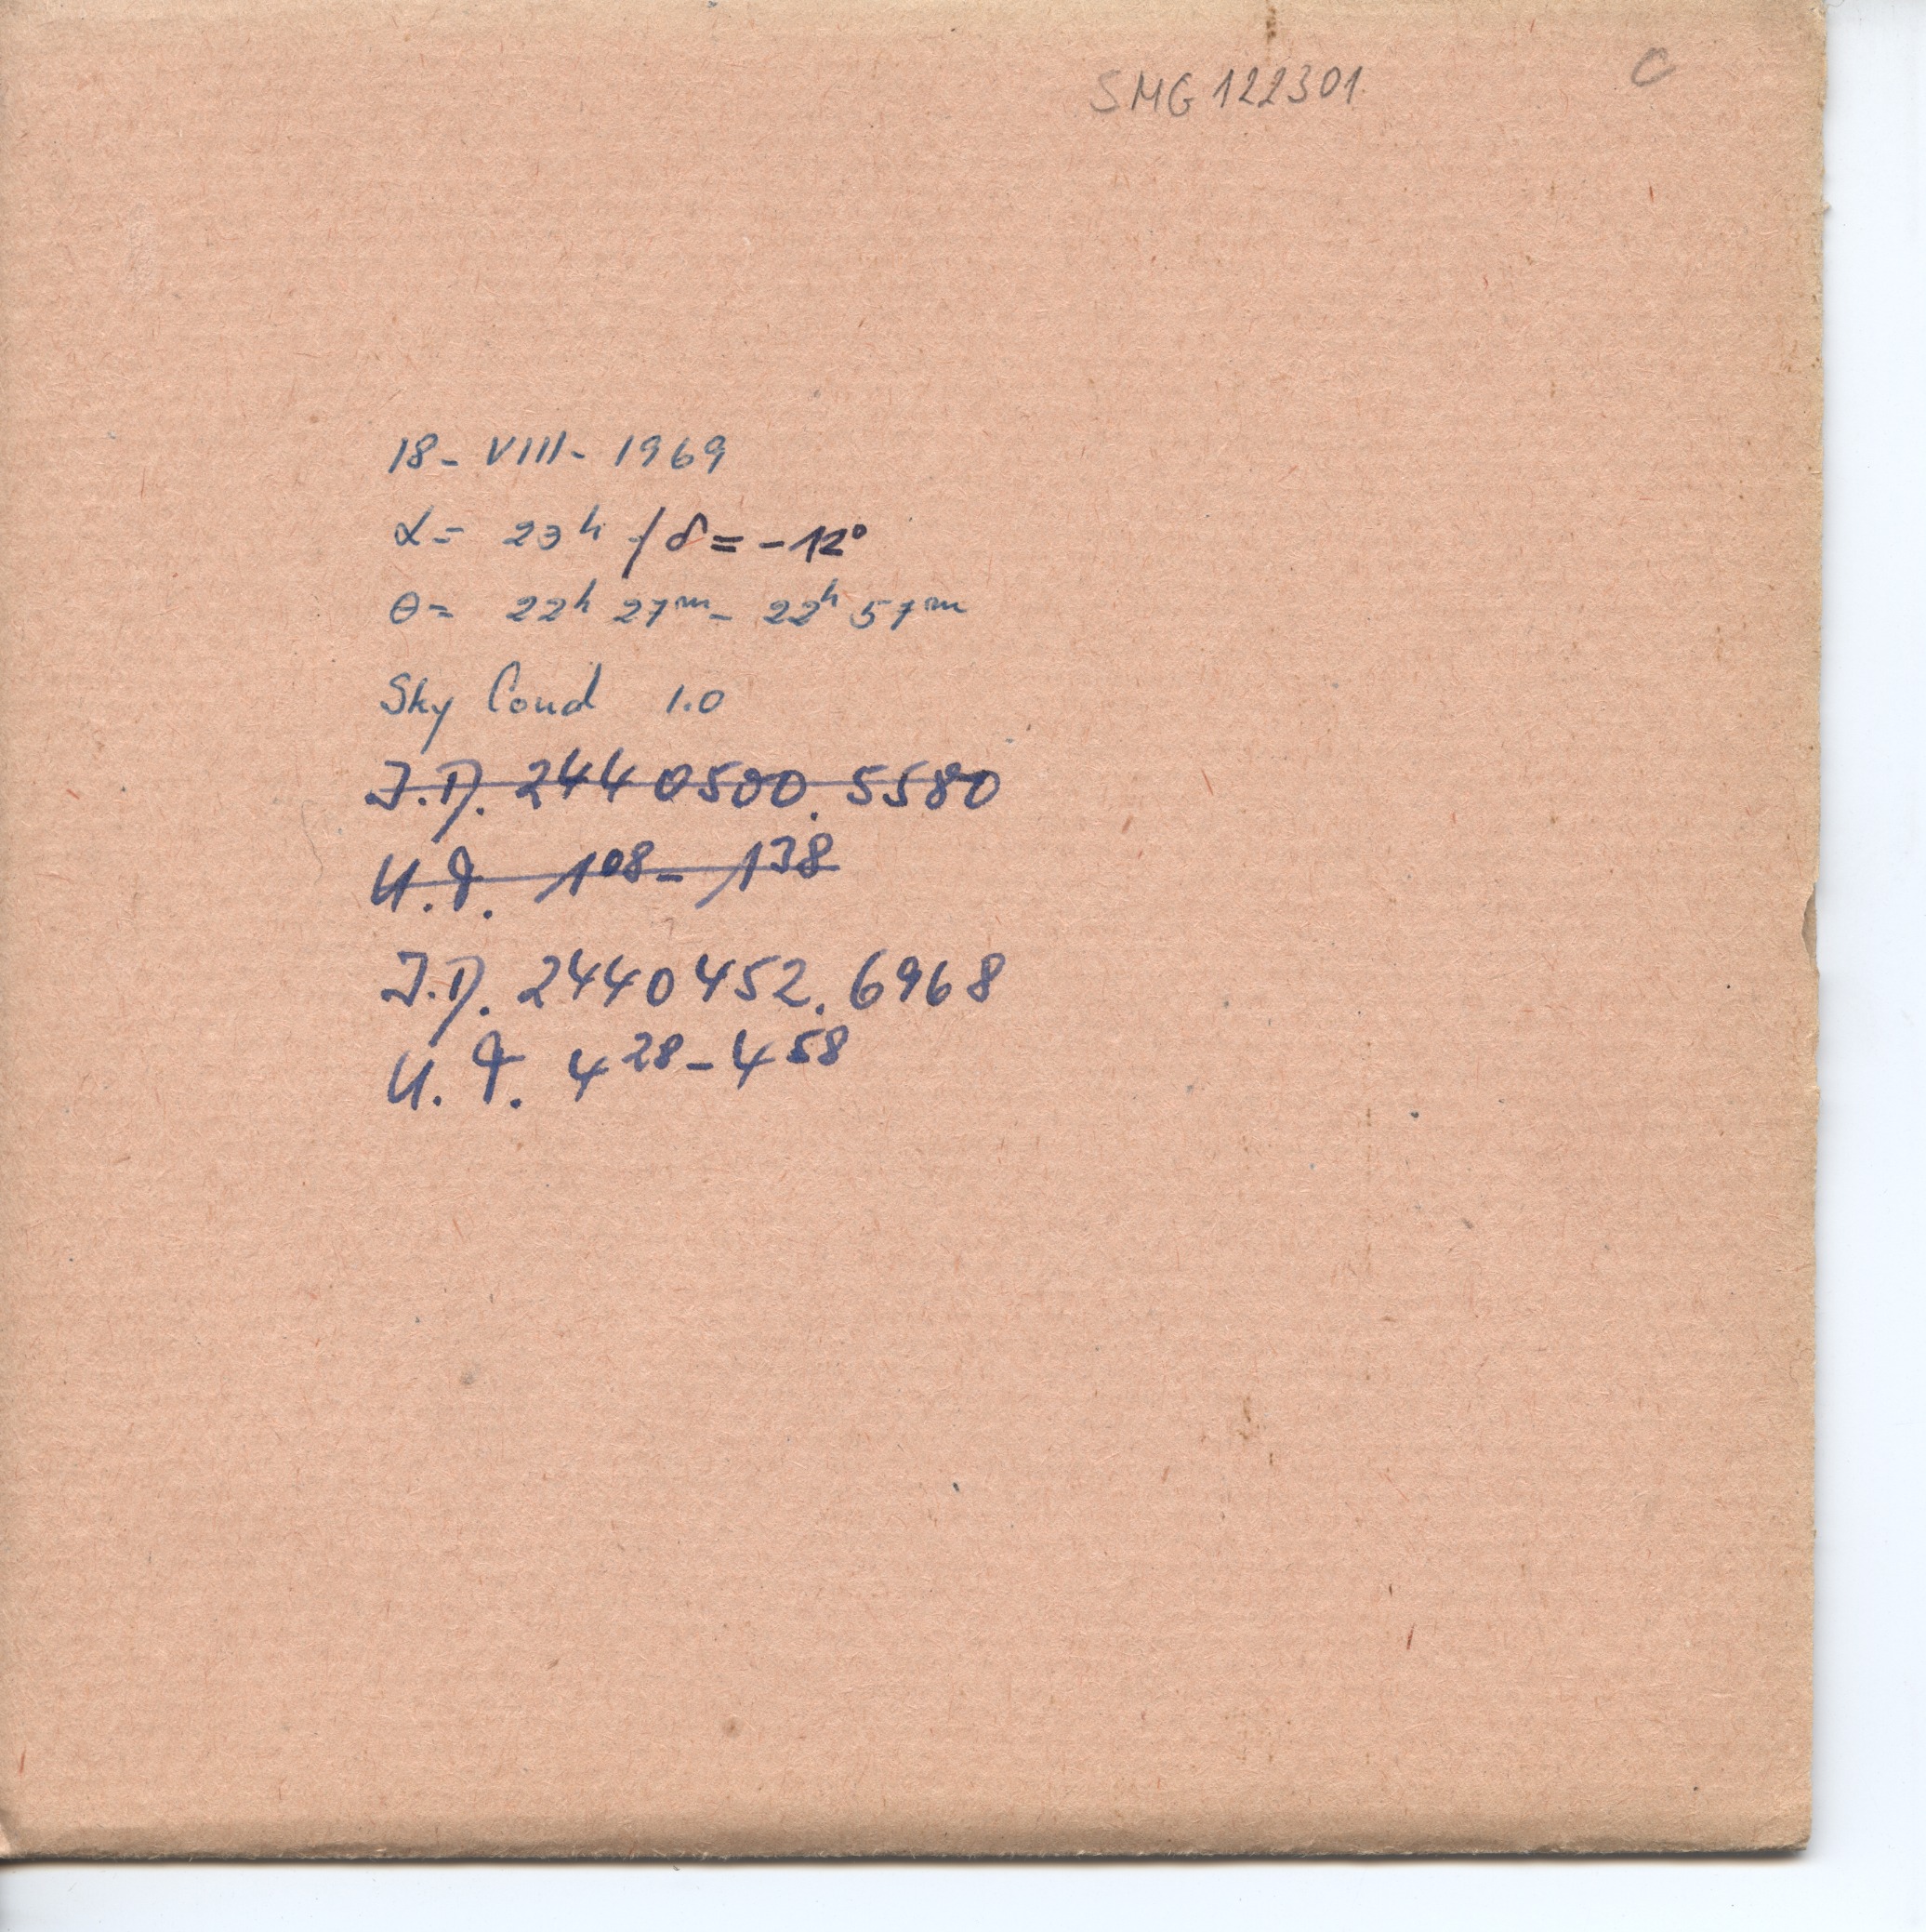 SMG 122301. C
18 - VIII - 1969
α = 23ʰ / δ = -12°
θ = 22ʰ 27ᵐ - 22ʰ 57ᵐ
Sky Cond 1.0
J.D. 2440500.5580
U.T. 1⁰⁸ - 1³⁸
J.D. 2440452.6968
U.T. 4²⁸ - 4⁵⁸